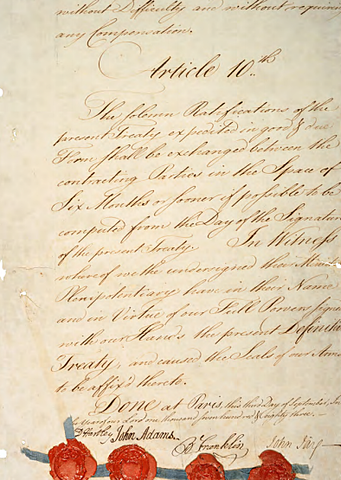 without Difficulty and without requirin
any Compensation.
Article 10.th
The solemn Ratifications of the
present Treaty expedited in good & due
Form shall be exchanged between the
contracting Parties in the Space of
Six Months or sooner if possible to be
computed from the Day of the Signature
of the present Treaty. In Witness
whereof we the undersigned their Minis
Plenipotentiary have in their Name
and in Virtue of our Full Powers signed
with our Hands the present Definitive
Treaty, and caused the Seals of our Arms
to be affix'd thereto.
Done at Paris, this third day of September, In
the Year of our Lord one thousand seven hundred & eighty three.
D Hartley John Adams B Franklin John Jay